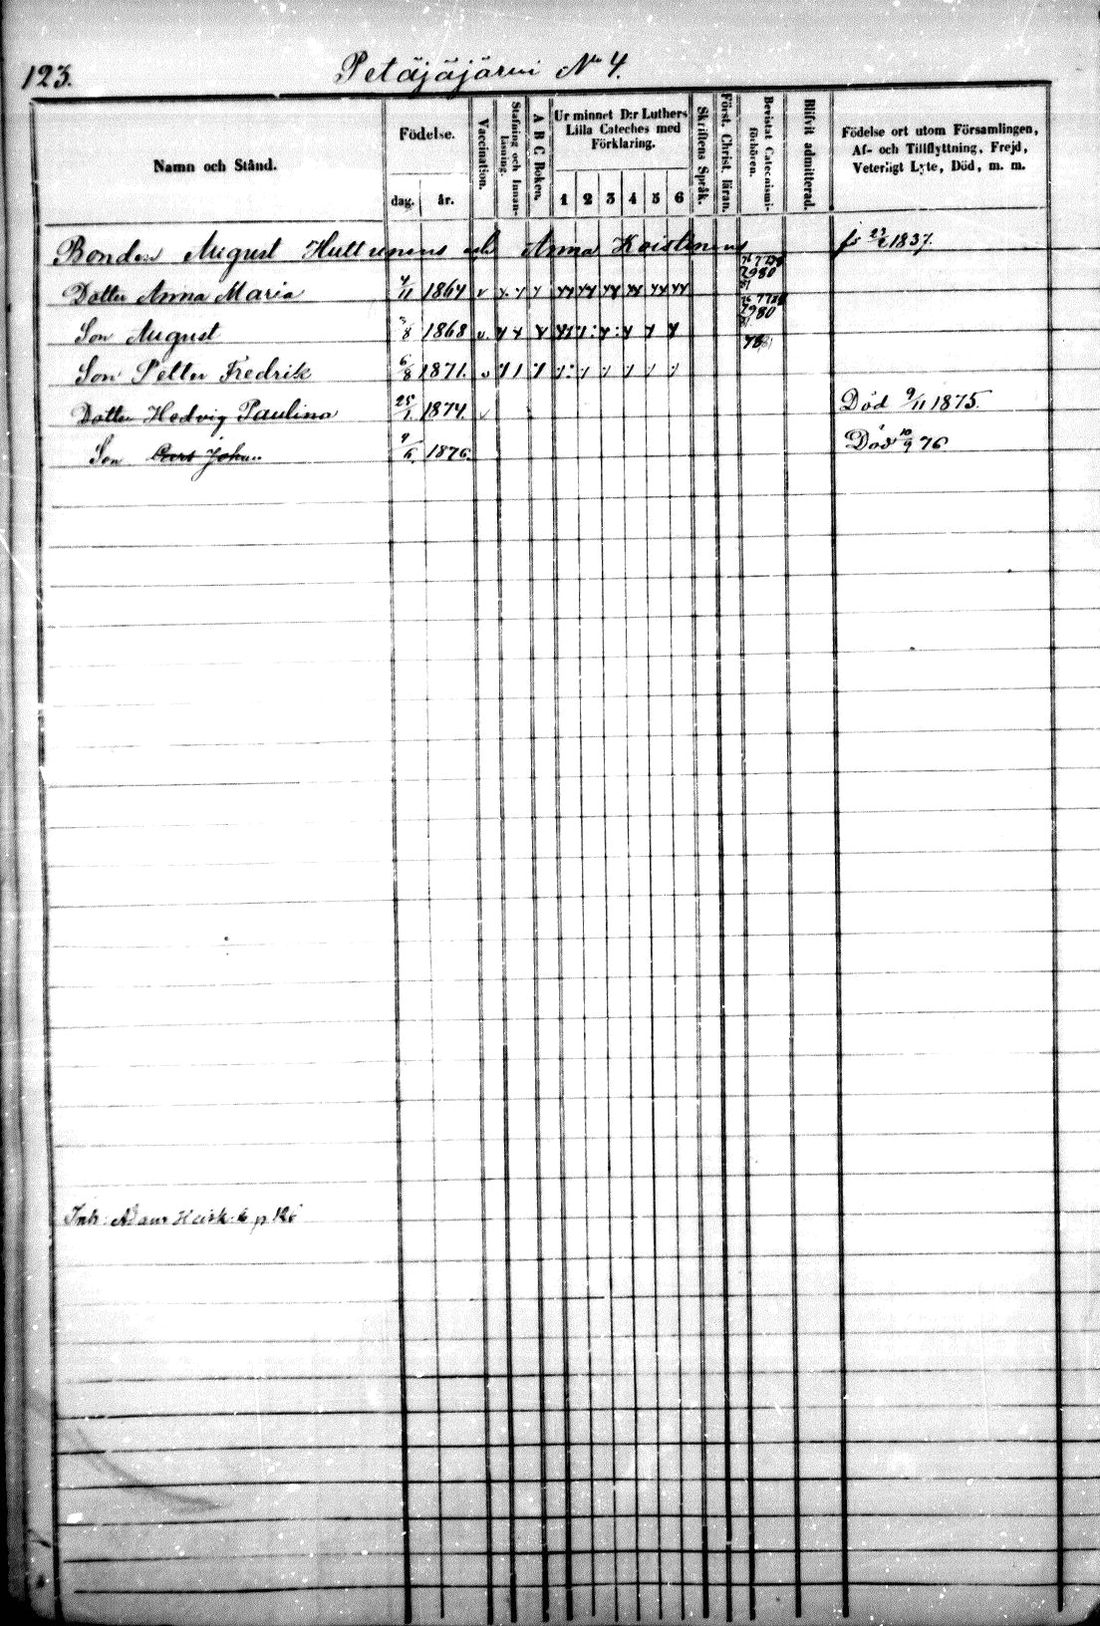 123.
Petäjäjärvi No 4.
Namn och Stånd.
Födelse.
dag.
år.
Vaccination.
Stafning och Innan-
läsning.
A B C Boken.
Ur minnet D:r Luthers
Lilla Cateches med
Förklaring.
1 2 3 4 5 6
Skriftens Språk.
Först. Christ. läran.
Bevistat Catecnismi-
förhören.
Blifvit admitterad.
Födelse ort utom Församlingen,
Af- och Tillflyttning, Frejd,
Veterligt Lyte, Död, m. m.
Bonden August Huttunens och Anna Koistinens 1837.
Dotter Anna Maria /11 1864 2980 81
Son August /8 1868 2980
Son Petter Fredrik 6/8 1871.
Dotter Hedvig Paulina 25/1 1874 Död 9/11 1875.
Son Carl Johan 9/6 1876. Död 10/9 76
Inh: Adam Heisk. p 126